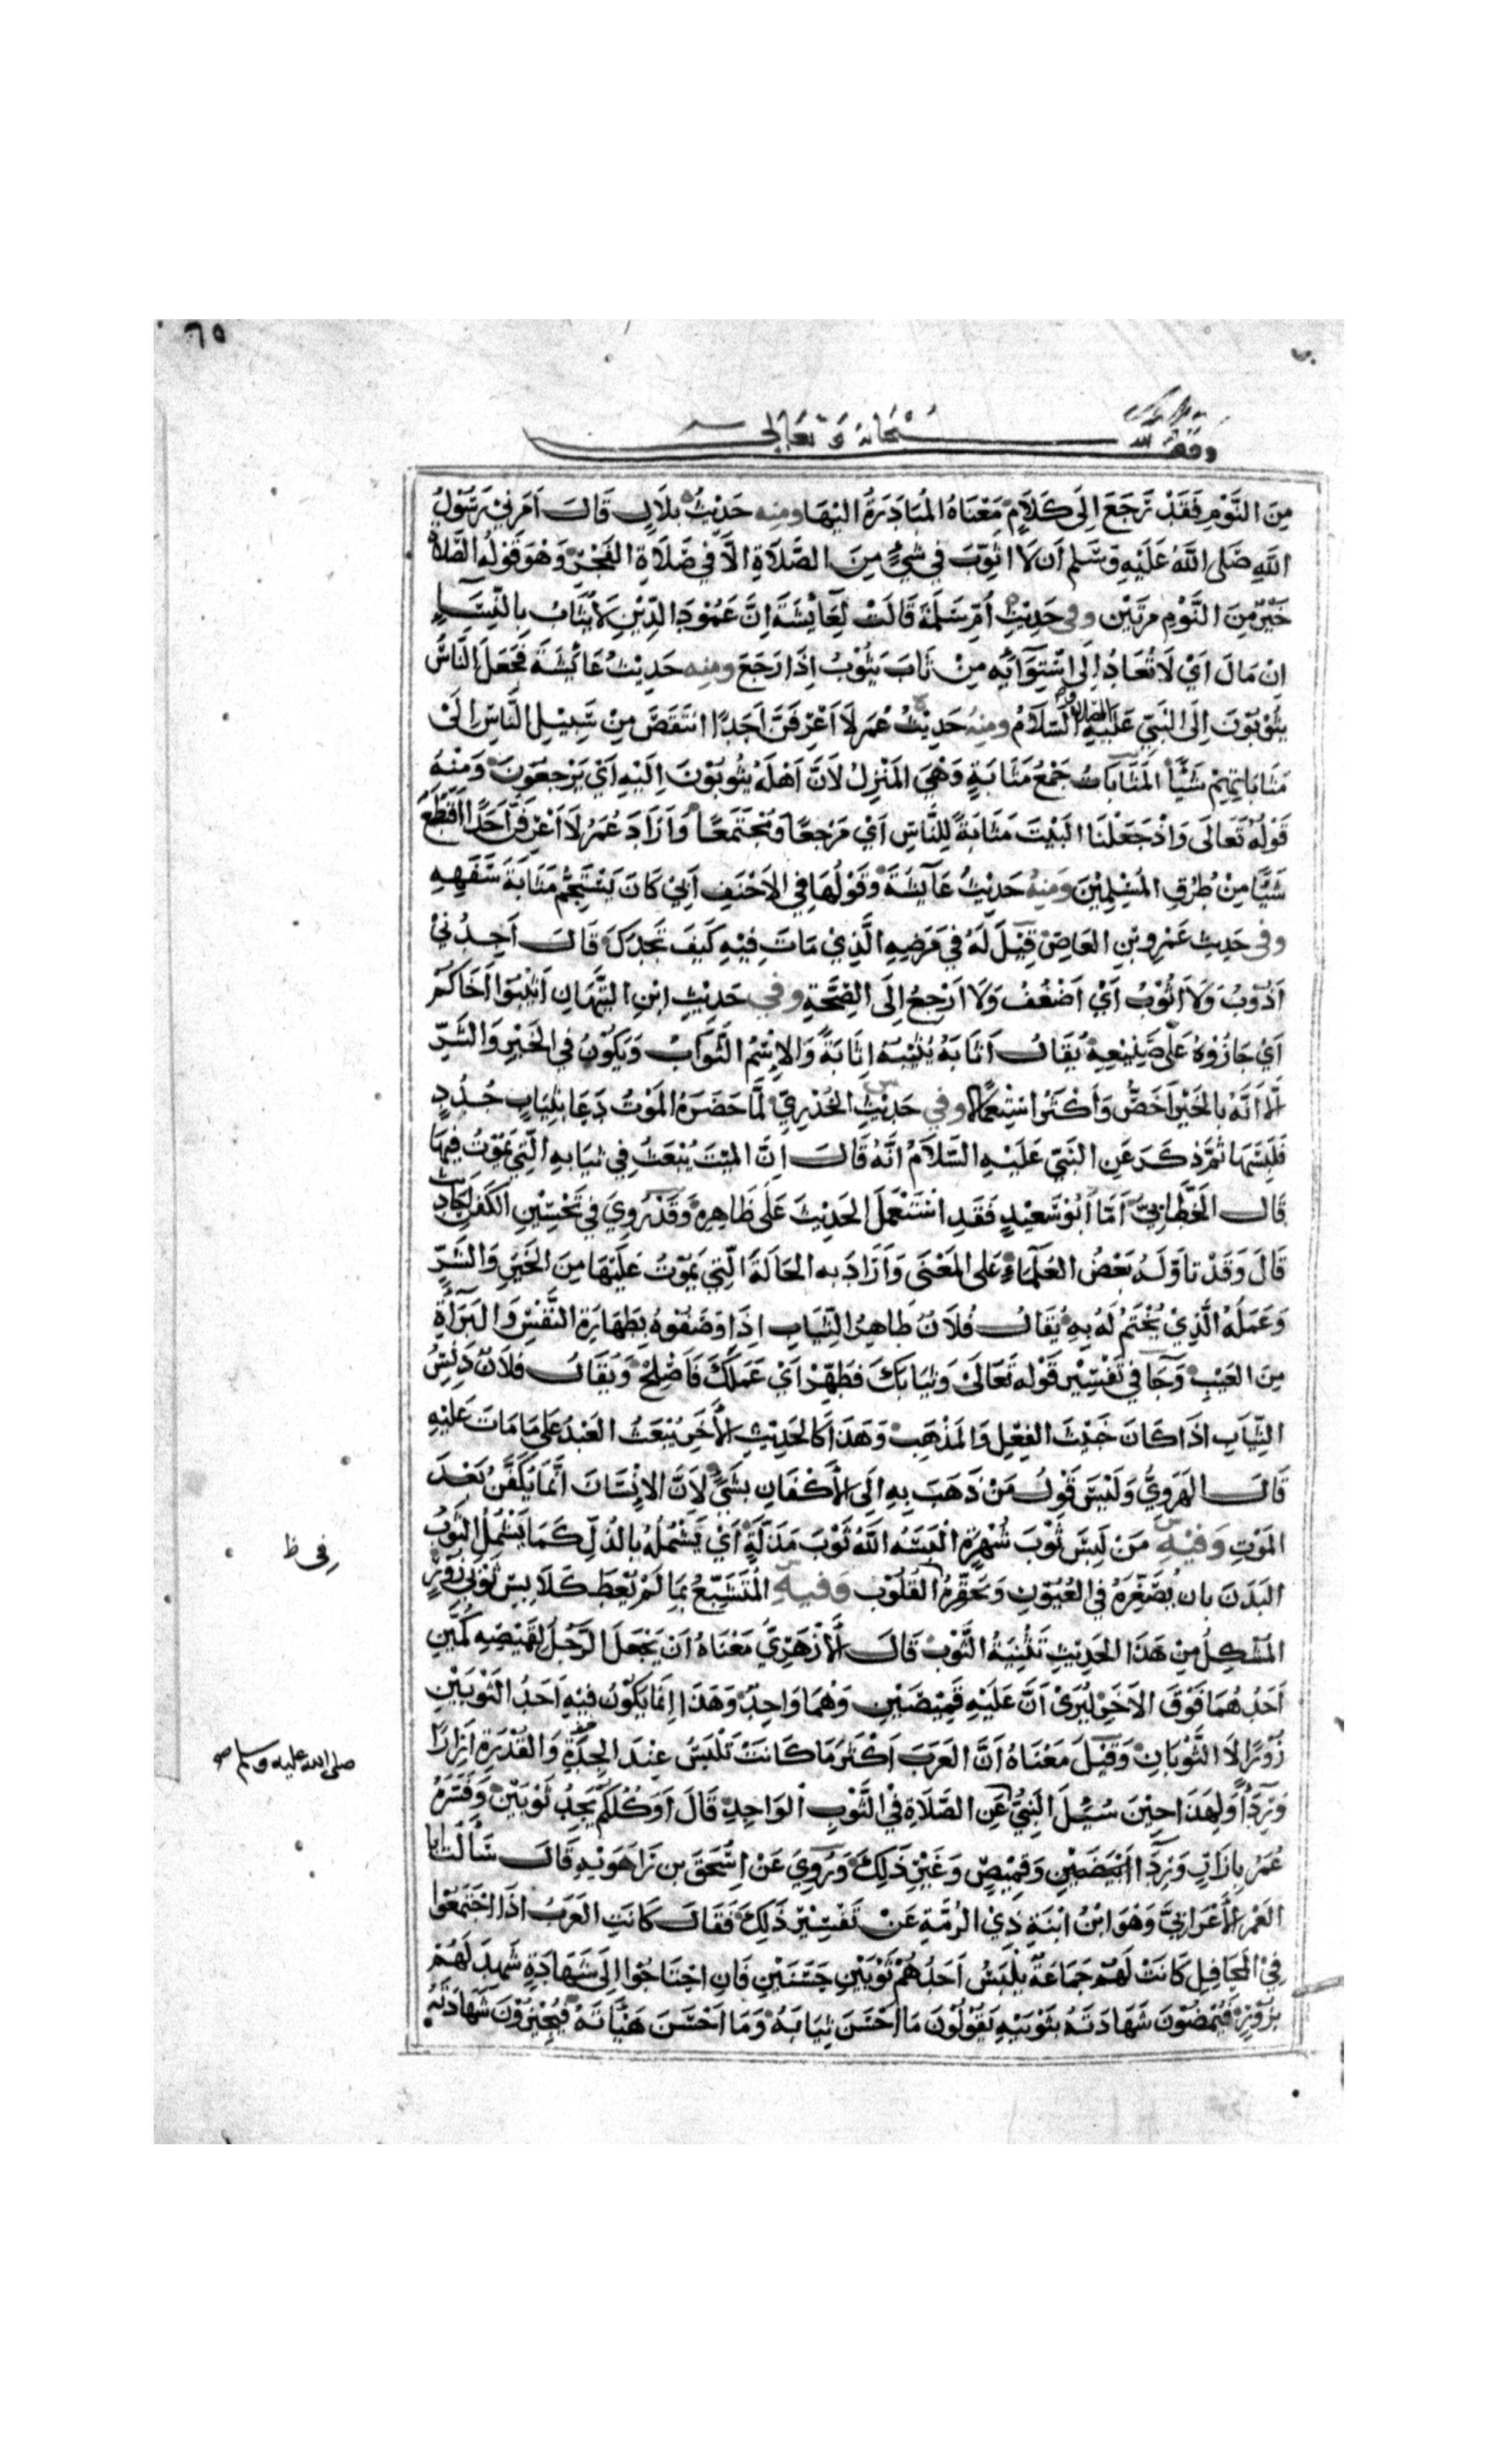 ٦٥
وقف لله سبحانه وتعالى
مِنَ النَّوْمِ فَقَدْ رَجَعَ اِلَى كَلَامٍ مَعْنَاهُ المُبَادَرَةُ اليْهَا ومنه حَدِيْثُ بلَالٍ قَالَ اَمَرَنِيْ رَسُوْلُ
اللهِ صَلى اللهُ عَلَيْهِ وسَلم اَن لَا اثوِّبَ فِي شَيْءٍ مِنَ الصَّلَاةِ الَّا فِي صَلَاةِ الفَجْرِ وَهْوَ قَوْلُهُ الصَّلَاةُ
خَيْرٌ مِنَ النَّوْمِ مرتَيْن وفى حَدِيْثِ اُمِّ سَلَمَةَ قَالَتْ لِعَايْشَةَ اِنَّ عَمُوْدَ الدِّيْنِ لَا يُثَابُ بالنِّسَاءِ
اِنْ مَالَ اَيْ لَا تُعَادُ اِلَى اسْتِوَآئِه مِنْ ثَابَ يَثُوْبُ اِذَا رَجَعَ ومنه حَدِيْثُ عَائِشَةَ فَجَعَلَ النَّاسُ
يثُوْبُوْنَ اِلَى النَبِيّ عَلَيْهِ الصلاة و السَّلَامُ ومنهُ حَدِيْثُ عُمَرَ لَا اَعْرِفَنَّ اَحَدًا انْتَقَصَ مِنْ سَبِيْلِ النَّاسِ اِلَى
مَثَابَاتِهِمْ شَيْئًا المَثَابَاتُ جَمْعُ مَثَابَةٍ وَهْيَ المَنْزِلُ لَاَنَّ اَهْلَهُ يثُوْبُوْنَ اِلَيْهِ اَيْ يَرْجعُوْنَ وَمِنْهُ
قَوْلهُ تَعَالَى وَاِذْ جَعَلْنَا البَيْتَ مَثَابَةً لِلنَّاسِ اَيْ مَرْجعًا وَمُجْتَمَعًا وَاَرَادَ عُمَرُ لَا اَعْرِفَنَّ اَحَدًا اقتَطَعَ
شَيْئًا مِنْ طُرُقِ المُسْلِمِيْنَ وَمِنهُ حَدِيْثُ عَايشَةَ وَقَوْلُهَا فِي الاَحْنَفِ اَبِيْ كَانَ يَسْتَجِمُّ مَثَابَةَ سَفَهِهِ
وفى حَدِيث عَمْرِو بْنِ العَاصِ قِيْلَ لَهُ فِي مَرَضِهِ الَّذِيْ مَاتَ فِيْهِ كَيفَ تَجِدُكَ قَالَ اَجِدُنِيْ
اَذُوْبُ وَلَا اَثُوْبُ اَيْ اَضْعُفُ وَلَا اَرْجِعُ اِلَى الصِّحَّةِ وفي حَدِيْثِ ابْنِ التَّيِّهَانِ اَثِيْبُوْا اَخَاكُمْ
اَيْ جَازُوْهُ عَلَى صَنِيْعِهِ يُقَالُ اَثَابَهُ يُثِيْبُهُ اِثَابَةً وَالاِسْمُ الثَّوَابُ وَيَكُوْنُ فِي الخَيْرِ وَالشَّرِّ
اِلَّا اَنَّهُ بالخَيْرِ اَخَصُّ وَاَكْثَرُ اسْتِعْمَالًا وفي حَدِيْثِ الخُدْرِيِّ لَمَّا حَضَرَهُ المَوْتُ دَعَا بثِيَابٍ جُدُدٍ
فَلَبِسَهَا ثُمَّ ذَكَرَ عَنِ النَبيّ عَلَيْهِ السَّلَامُ انَّهُ قَالَ اِنَّ الميِّتَ يُبْعَثُ فِي ثيَابهِ الَّتِي يَمُوْتُ فِيْهَا
قَالَ الخَطَّابِيُّ اَمَّا اَبُوْ سَعِيْدٍ فَقَدِ اسْتَعْمَلَ الحَدِيْثَ عَلَى ظَاهِرِهِ وَقَدْ رُوِيَ فِي تَحْسِيْنِ الكَفَنِ احَادِيث
قَالَ وَقَدْ تاَوَّلَهُ بَعْضُ العُلَمَاءِ عَلَى المَعْنَى وَاَرَادَ بهِ الحَالَةَ الَّتِي يَمُوْتُ عَلَيْهَا مِنَ الخَيْرِ وَالشَّرِّ
وَعَمَلَهُ الَّذِيْ يُخْتَمُ لَهُ بِهِ يُقَالُ فُلَانٌ طَاهِرُ الثِّيَابِ اِذَا وَصَفُوْهُ بِطَهَارَةِ النَّفْسِ وَالبَرَاءَةِ
مِنَ العَيْبِ وَجَا في تَفْسِيْرِ قَوْلهِ تَعَالَى وَثيَابَكَ فَطَهِّرْ اَيْ عَمَلَكَ فَاَصْلِحْ وَيُقَالُ فلَانٌ دَنِسُ
الثِّيَابِ اِذَا كَانَ خَبيْثَ الفِعْلِ وَالمَذْهَبِ وَهَذَا كَالحَدِيْثِ الأخَرِ يُبْعَثُ العَبْدُ عَلَى مَا مَاتَ عَلَيْهِ
قَالَ الهَرَوِيُّ وَلَيْسَ قَوْلُ مَنْ ذَهَبَ بِهِ اِلَى الأكْفَانِ بشَيْءٍ لِاَنَّ الاِنْسَانَ اِنَّمَا يُكَفَّنُ بَعْدَ
المَوْتِ وَفيْهِ مَنْ لَبِسَ ثَوْبَ شُهْرَةٍ اَلْبَسَهُ اللهُ ثَوْبَ مَذَلَّةٍ اَيْ يَشْمُلُهُ بالذُّلِّ كَمَا يَشْمُلُ الثَّوْبُ
البَدَنَ بان يُصَغِّرَهُ فِي العُيُوْنِ وَيحَقِّرَهُ القُلُوْب وَفيهِ المُتَشَبِّعُ بمَا لَمْ يُعْطَ كَلَابِسِ ثَوْبَيْ زُوْرٍ
المُشْكِلُ مِنْ هَذَا الحَدِيْثِ تَثْنِيَةُ الثَّوْبِ قَالَ الأَزْهَرِيُّ مَعْنَاهُ اَنْ يَجْعَلَ الرَّجُلُ لِقَمِيْصِهِ كُمَّيْنِ
اَحَدُهُمَا فَوْقَ الاَخَرِ لِيُرَى اَنَّ عَلَيْهِ قَمِيْصَيْنِ وَهُمَا وَاحِدٌ وَهَذَا اِنَّمَا يَكُوْنُ فِيْهِ اَحَدُ الثَّوْبَيْنِ
زُوْرًا لَا الثَّوْبَانِ وَقِيْلَ مَعْنَاهُ اَنَّ العَرَبَ اَكْثَرُ مَا كَانَتْ تَلْبَسُ عِنْدَ الجِدَّةِ وَالقُدْرَةِ اِزَارًا
وَرِدَآءً وَلِهَذَا حِيْنَ سُئِلَ النَبِيُّ عَنِ الصَّلَاةِ فِي الثَّوْبِ الوَاحِدِ قَالَ اَوَكُلُّكُمْ يَجِدُ ثَوْبَيْنِ وَفَسَّرَهُ
عُمَرُ بِاِزَارٍ وَرِدَآءٍ وَقَمِيْصٍ وَغَيْرِ ذَلِكَ وَرُوِيَ عَنْ اِسْحَقَ بن رَاهَوَيْهِ قَالَ سَأَلْتُ ابا
الغَمْرِ الأَعْرَابِيَّ وَهْوَ ابْنُ ابْنَةِ ذِي الرُّمَّةِ عَنْ تَفْسِيْرِ ذَلِكَ فَقَالَ كَانَتِ العَرَبُ اِذَا اجْتَمَعُوْا
فِي المَحَافِلِ كَانَتْ لَهُمْ جَمَاعَةٌ يَلْبَسُ اَحَدُهُمْ ثَوْبَيْنِ حَسَنَيْنِ فَاِنِ احْتَاجُوْا اِلَى شَهَادَةٍ شَهِدَ لَهُمْ
بزُوْرٍ فَيُمْضُوْنَ شَهَادَتَهُ بثَوْبَيْهِ يَقُوْلُوْنَ مَا اَحْسَنَ ثِيَابَهُ وَمَا اَحْسَنَ هَيْأتَهُ فَيُجِيْزُوْنَ شَهَادَتَهُ
فى ظ
صلى الله عليه وسلم صح